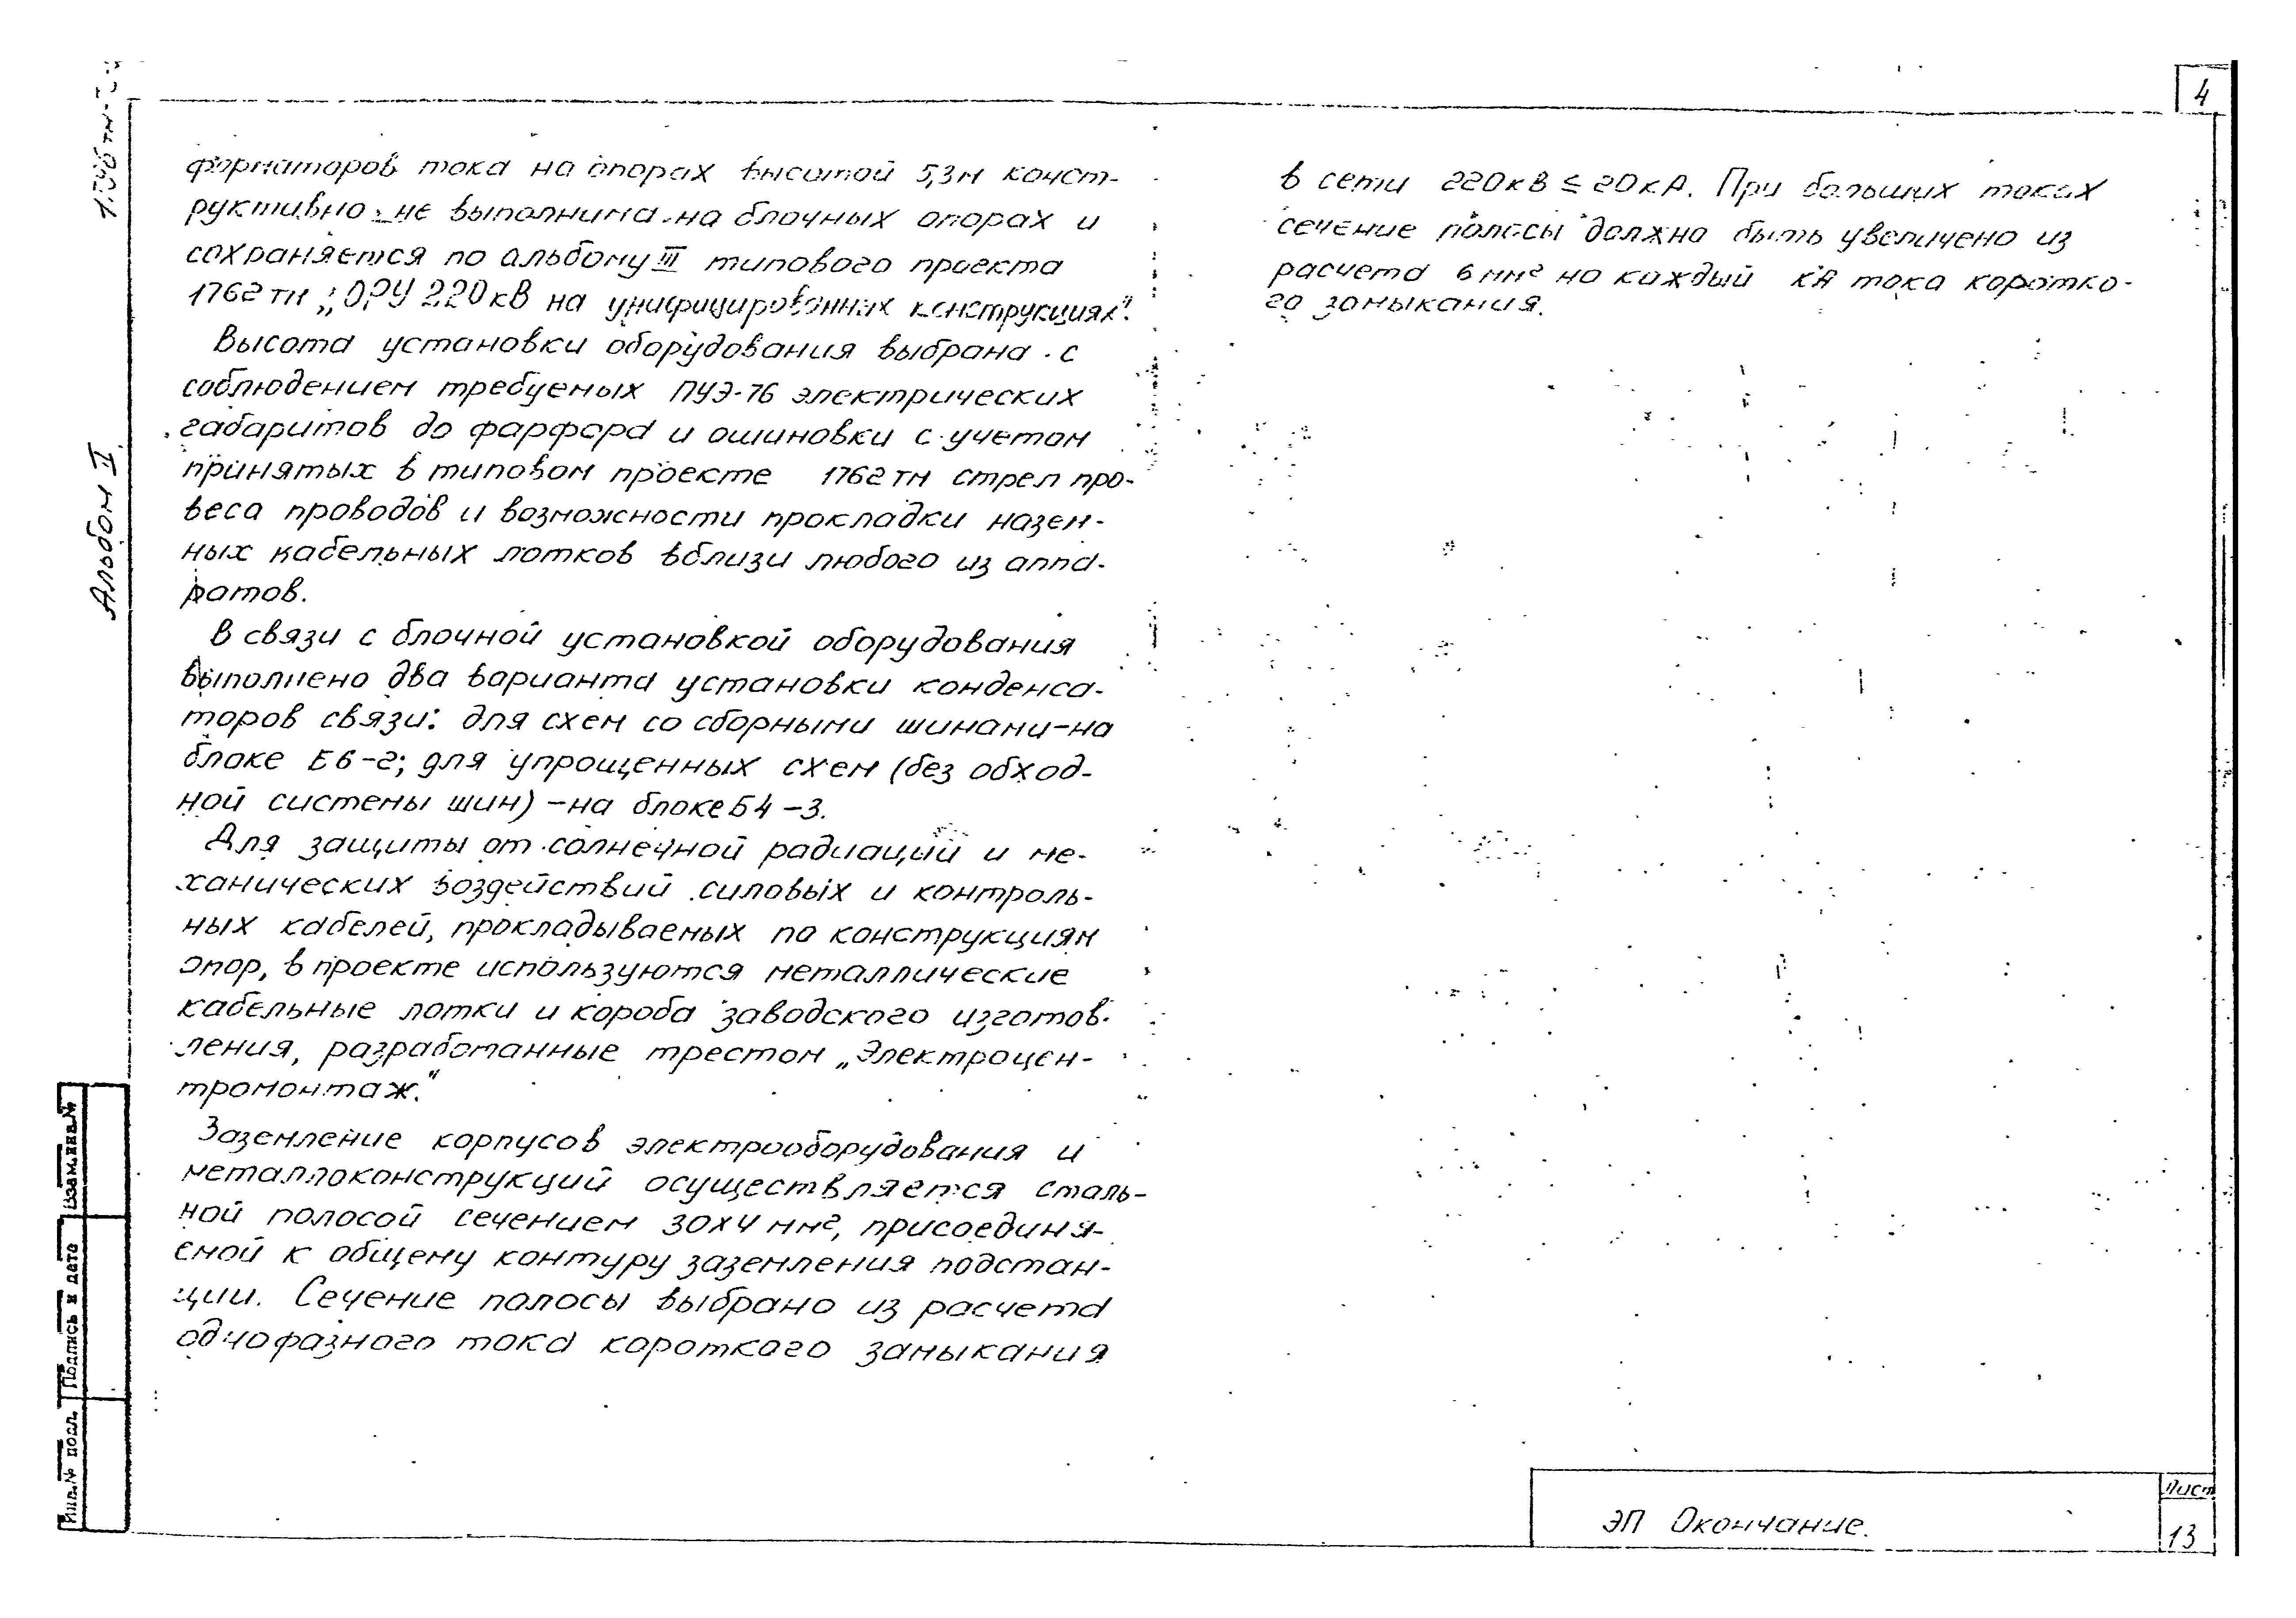 4
Альбом II
форматоров тока на опорах высотой 5,3м конст-
руктивно не выполнима на блочных опорах и
сохраняется по альбому III типового проекта
1762 тм „ОРУ 220кВ на унифицированных конструкциях".
Высота установки оборудования выбрана с
соблюдением требуемых ПУЭ-76 электрических
габаритов до фарфора и ошиновки с учетом
принятых в типовом проекте 1762 тм стрел про-
веса проводов и возможности прокладки назем-
ных кабельных лотков вблизи любого из аппа-
ратов.
В связи с блочной установкой оборудования
выполнено два варианта установки конденса-
торов связи: для схем со сборными шинами-на
блоке Б6-2; для упрощенных схем (без обход-
ной системы шин) -на блоке Б4-3.
Для защиты от солнечной радиации и ме-
ханических воздействий силовых и контроль-
ных кабелей, прокладываемых по конструкциям
опор, в проекте используются металлические
кабельные лотки и короба заводского изготов-
ления, разработанные трестом „Электроцен-
тромонтаж."
Заземление корпусов электрооборудования и
металлоконструкций осуществляется сталь-
ной полосой сечением 30х4 мм², присоединя-
емой к общему контуру заземления подстан-
ции. Сечение полосы выбрано из расчета
однофазного тока короткого замыкания
в сети 220кВ ≤ 20кА. При больших токах
сечение полосы должно быть увеличено из
расчета 6 мм² на каждый кА тока коротко-
го замыкания.
Взам.инв.№
Подпись и дата
Инв.№ подл.
ЭП Окончание.
Лист
13